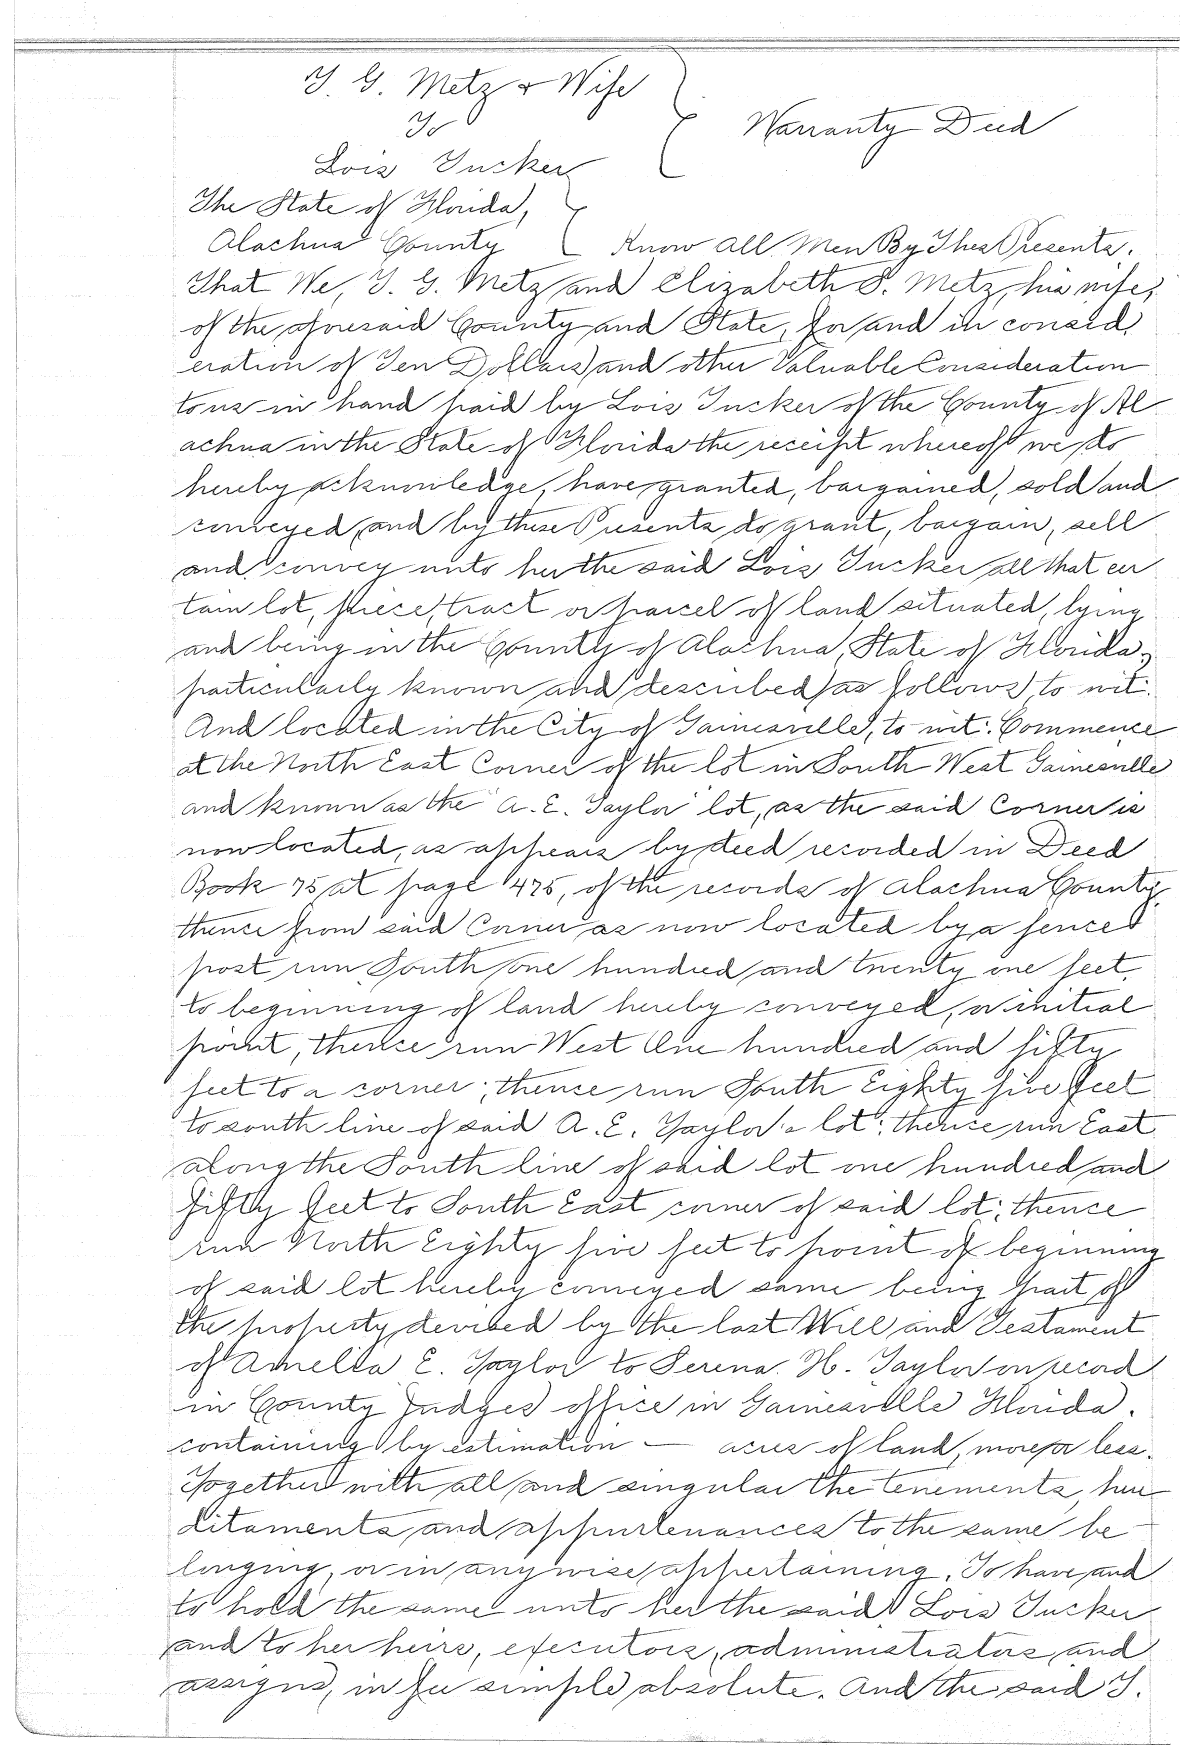 T. G. Metz & Wife
To
Warranty Deed
Lois Tucker
The State of Florida,
Alachua County Know All Men By These Presents.
That We, T. G. Metz and Elizabeth S. Metz, his wife,
of the aforesaid County and State, for and in consid
eration of Ten Dollars and other Valuable Consideration
to us in hand paid by Lois Tucker of the County of Al
achua in the State of Florida the receipt whereof we do
hereby acknowledge, have granted, bargained, sold and
conveyed, and by these Presents do grant, bargain, sell
and convey unto her the said Lois Tucker all that cer
tain lot, piece, tract or parcel of land situated, lying
and being in the County of Alachua, State of Florida,
particularly known and described as follows, to wit:
And located in the City of Gainesville, to wit: Commence
at the North East Corner of the lot in South West Gainesville
and known as the "A. E. Taylor" lot, as the said Corner is
now located, as appears by deed recorded in Deed
Book 75 at page 475, of the records of Alachua County,
thence from said Corner as now located by a fence
post run South one hundred and twenty one feet,
to beginning of land hereby conveyed, or initial
point, thence run West One hundred and fifty
feet to a corner; thence run South Eighty five feet
to south line of said A. E. Taylor's lot; thence run East
along the South line of said lot one hundred and
fifty feet to South East corner of said lot; thence
run North Eighty five feet to point of beginning
of said lot hereby conveyed same being part of
the property devised by the last Will and Testament
of Amelia E. Taylor to Serena H. Taylor on record
in County Judges office in Gainesville Florida.
containing by estimation — acres of land, more or less.
Together with all and singular the tenements, here
ditaments and appurtenances to the same be
longing, or in anywise appertaining. To have and
to hold the same unto her the said Lois Tucker
and to her heirs, executors, administrators and
assigns, in fee simple absolute. And the said T.